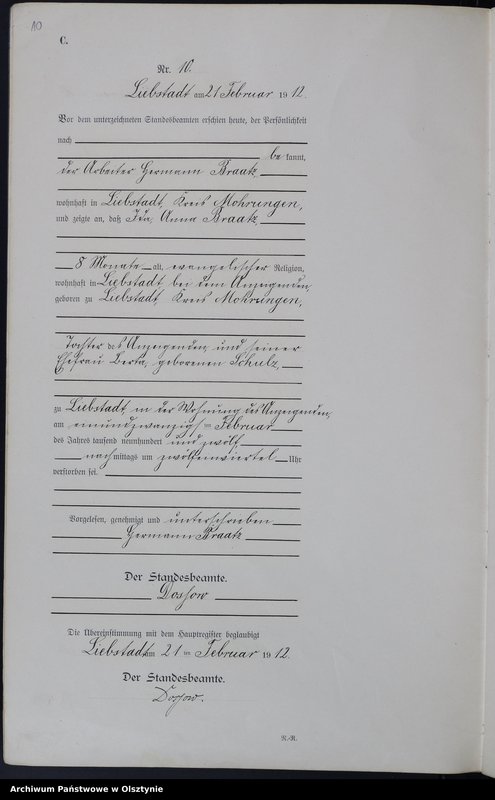 10
C.
Nr. 10.
Liebstadt am 21 Februar 1912.
Vor dem unterzeichneten Standesbeamten erschien heute, der Persönlichkeit
nach
be kannt,
der Arbeiter Hermann Braatz,
wohnhaft in Liebstadt, Kreis Mohrungen,
und zeigte an, daß Ida, Anna Braatz,
8 Monate alt, evangelischer Religion,
wohnhaft in Liebstadt bei dem Anzeigenden,
geboren zu Liebstadt, Kreis Mohrungen,
Tochter des Anzeigenden und seiner
Ehefrau Berta, geborenen Schulz,
zu Liebstadt, in der Wohnung des Anzeigenden,
am einundzwanzigsten Februar
des Jahres tausend neunhundert und zwölf
nach mittags um zwölfeinviertel Uhr
verstorben sei.
Vorgelesen, genehmigt und unterschrieben
Hermann Braatz
Der Standesbeamte.
Dossow
Die Übereinstimmung mit dem Hauptregister beglaubigt
Liebstadt am 21 ten Februar 1912.
Der Standesbeamte.
Dossow.
R.-R.
Archiwum Państwowe w Olsztynie